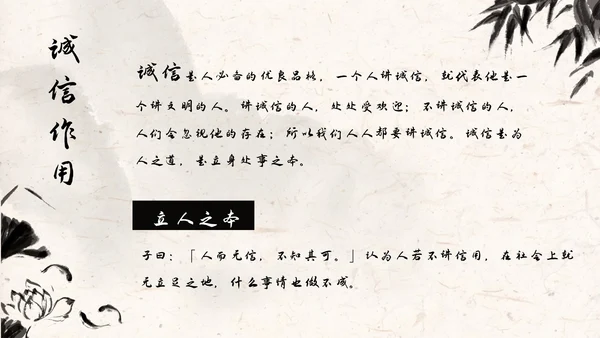 诚信作用
诚信是人必备的优良品格，一个人讲诚信，就代表他是一
个讲文明的人。讲诚信的人，处处受欢迎；不讲诚信的人，
人们会忽视他的存在；所以我们人人都要讲诚信。诚信是为
人之道，是立身处事之本。
立人之本
子曰：「人而无信，不知其可。」认为人若不讲信用，在社会上就
无立足之地，什么事情也做不成。